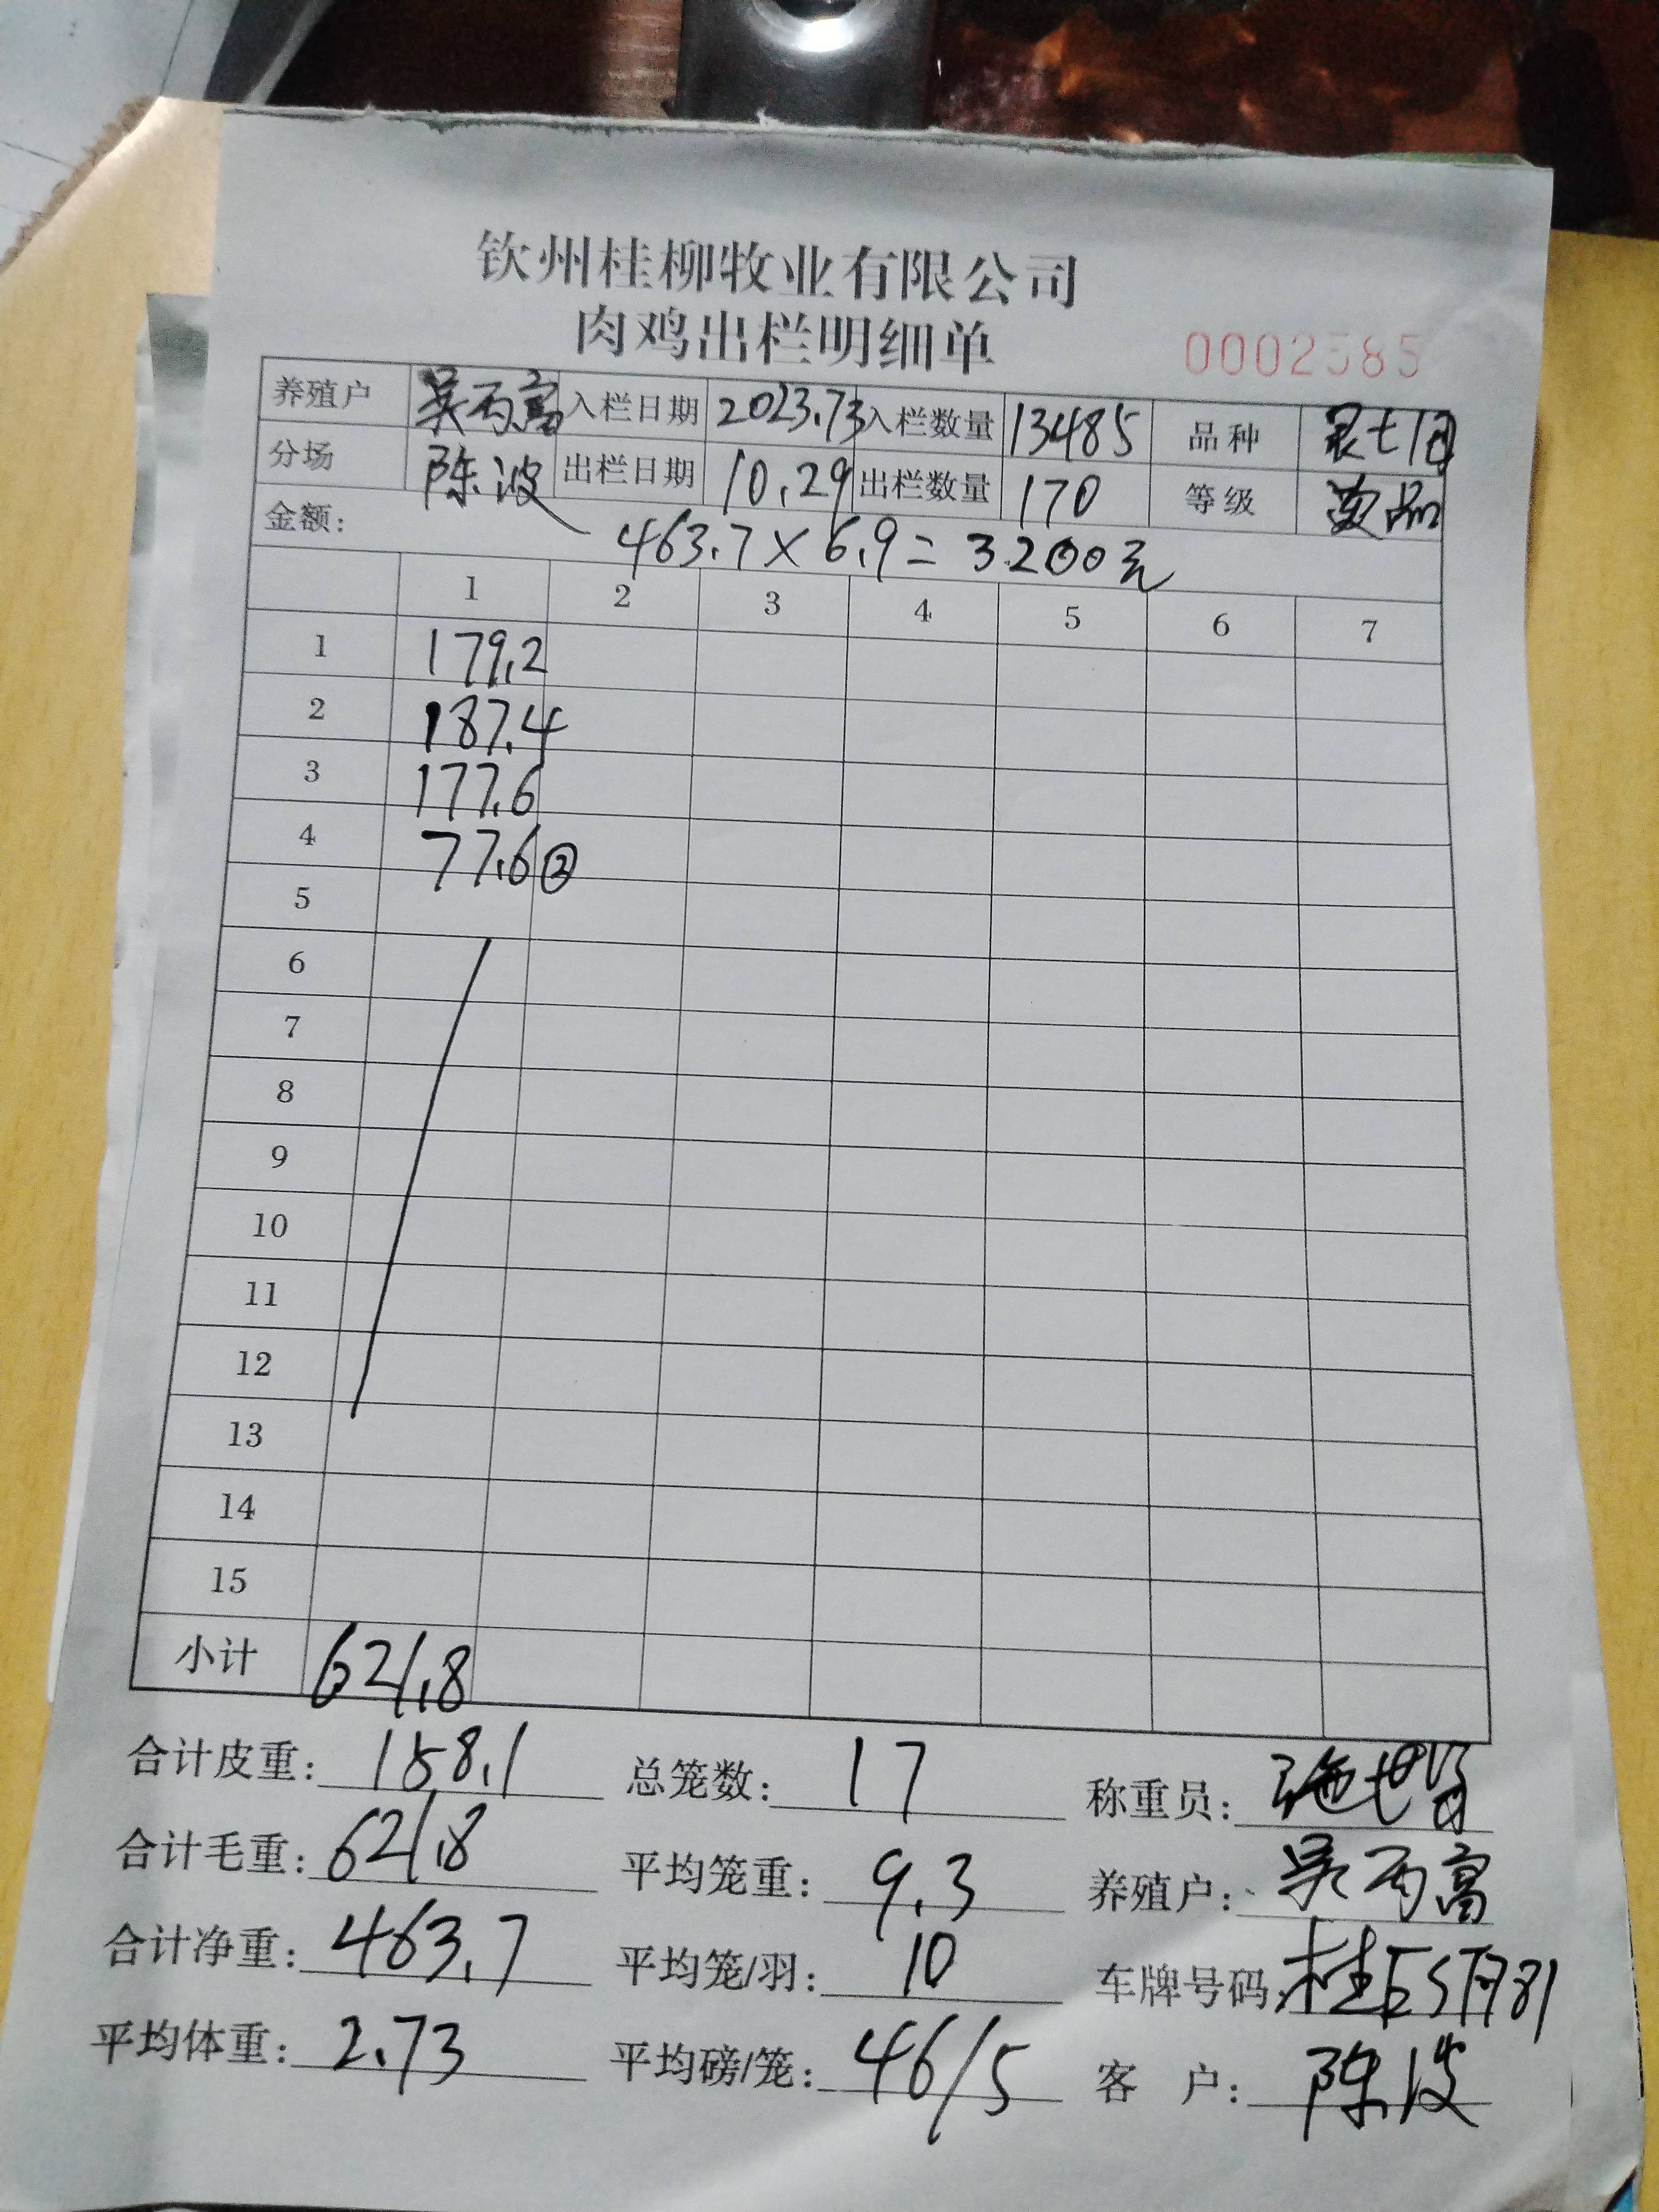 钦州桂柳牧业有限公司
肉鸡出栏明细单
0002585
养殖户 吴丙高 入栏日期 2023.7.3 入栏数量 13485 品种
分场 陈波 出栏日期 10.29 出栏数量 170 等级
金额: 463.7×6.9=3200元
1 2 3 4 5 6 7
1 179.2
2 187.4
3 177.6
4 77.6②
5
6
7
8
9
10
11
12
13
14
15
小计 621.8
合计皮重: 158.1 总笼数: 17 称重员:
合计毛重: 621.8 平均笼重: 9.3 养殖户: 吴丙高
合计净重: 463.7 平均笼/羽: 10 车牌号码:
平均体重: 2.73 平均磅/笼: 46/5 客 户: 陈波